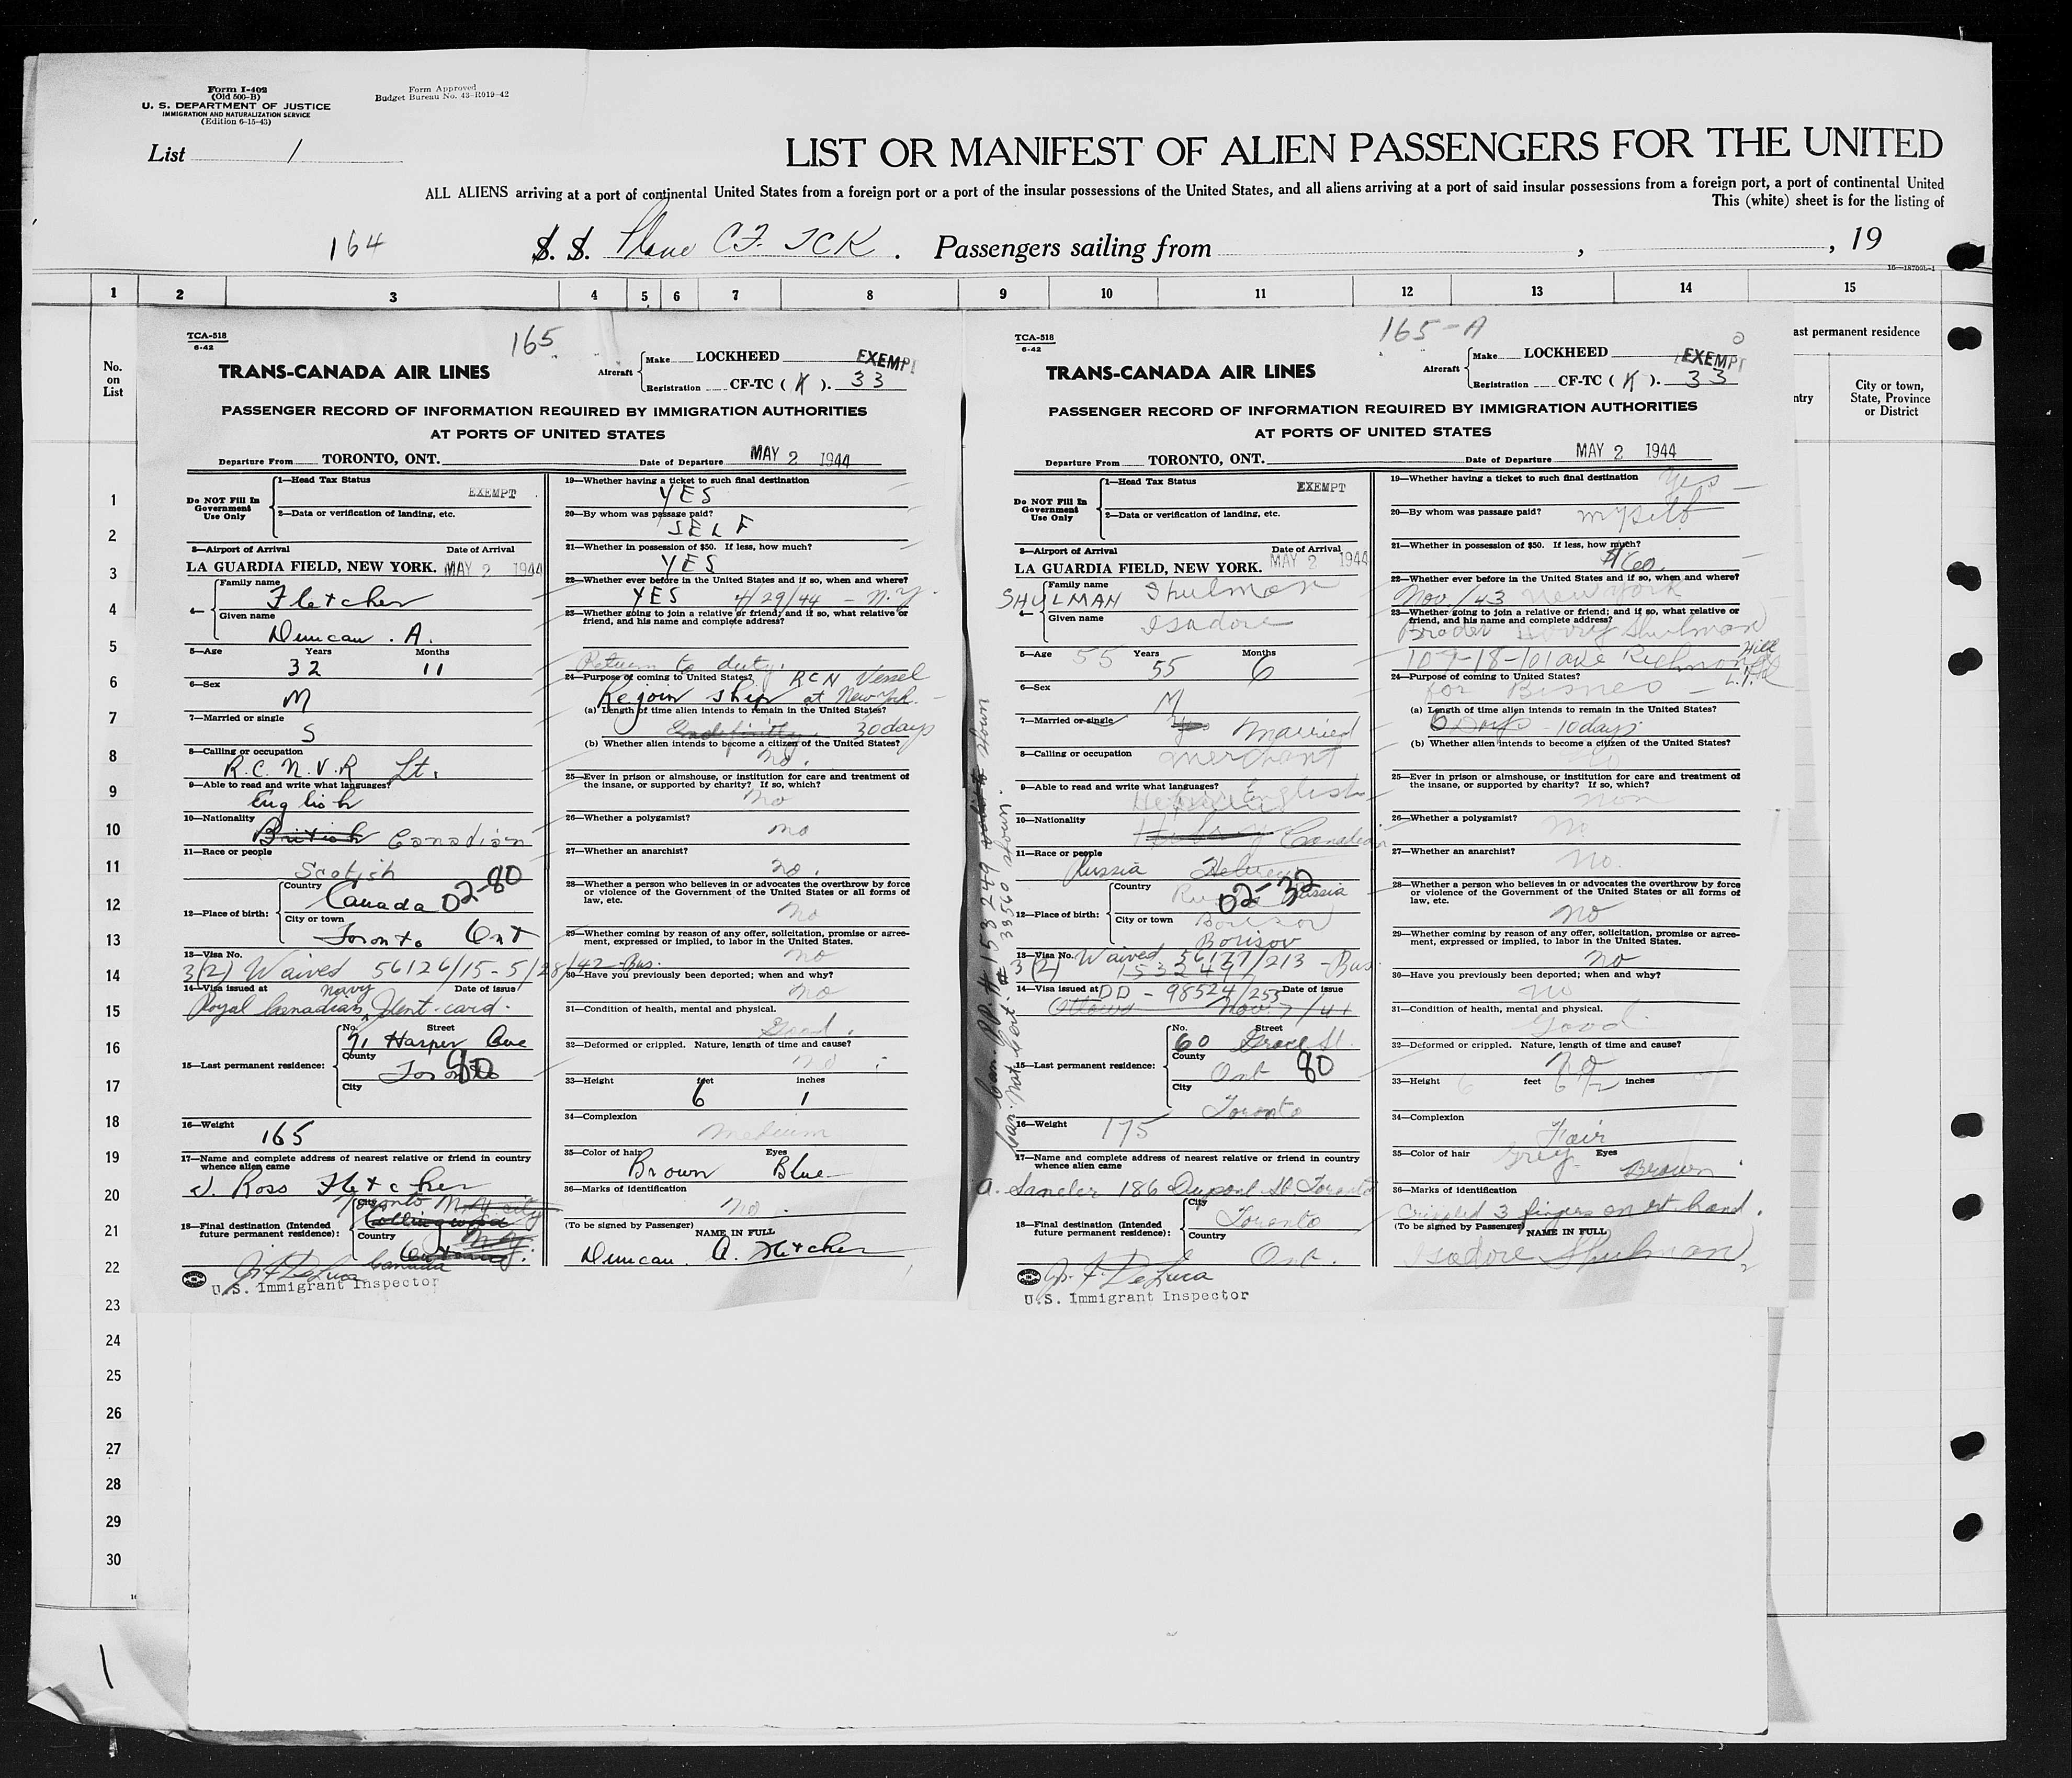 Form I-402
(Old 500-B)
U. S. DEPARTMENT OF JUSTICE
IMMIGRATION AND NATURALIZATION SERVICE
(Edition 6-15-43)
Form Approved
Budget Bureau No. 43-R019-42
List 1
LIST OR MANIFEST OF ALIEN PASSENGERS FOR THE UNITED
ALL ALIENS arriving at a port of continental United States from a foreign port or a port of the insular possessions of the United States, and all aliens arriving at a port of said insular possessions from a foreign port, a port of continental United
This (white) sheet is for the listing of
164 S. S. Plane CF. TCK. Passengers sailing from , , 19
1 2 3 4 5 6 7 8 9 10 11 12 13 14 15
No. on List
ast permanent residence
ntry
City or town, State, Province or District
1
2
3
4
5
6
7
8
9
10
11
12
13
14
15
16
17
18
19
20
21
22
23
24
25
26
27
28
29
30
1
TCA-518
6-42
165
TRANS-CANADA AIR LINES
Aircraft Make LOCKHEED EXEMPT
Registration CF-TC ( K ). 33
PASSENGER RECORD OF INFORMATION REQUIRED BY IMMIGRATION AUTHORITIES
AT PORTS OF UNITED STATES
Departure From TORONTO, ONT. Date of Departure MAY 2 1944
Do NOT Fill In Government Use Only
1—Head Tax Status EXEMPT
2—Data or verification of landing, etc.
3—Airport of Arrival Date of Arrival
LA GUARDIA FIELD, NEW YORK. MAY 2 1944
4— Family name Fletcher
Given name Duncan. A.
5—Age Years Months
32 11
6—Sex
M
7—Married or single
S
8—Calling or occupation
R.C.N.V.R Lt.
9—Able to read and write what languages?
English
10—Nationality
British Canadian
11—Race or people
Scotish
12—Place of birth: Country Canada 02-80
City or town Toronto Ont
13—Visa No.
3(2) Waived 56126/15-5/28/42-Bus.
14—Visa issued at Date of issue
Royal Canadian Navy Ident. card.
15—Last permanent residence: No. Street
71 Harper Ave
County
Toronto 80
City
16—Weight
165
17—Name and complete address of nearest relative or friend in country whence alien came
J. Ross Fletcher
18—Final destination (Intended future permanent residence): City Toronto N.Y. city
Collingwood
Country N.Y.
Ontario
Canada
J. F. DeLuca
U.S. Immigrant Inspector
19—Whether having a ticket to such final destination
YES
20—By whom was passage paid?
SELF
21—Whether in possession of $50. If less, how much?
YES
22—Whether ever before in the United States and if so, when and where?
YES 4/29/44 - N.Y.
23—Whether going to join a relative or friend; and if so, what relative or friend, and his name and complete address?
Return to duty.
24—Purpose of coming to United States? RCN Vessel
Rejoin ship at New York.
(a) Length of time alien intends to remain in the United States?
Indefinitly 30 days
(b) Whether alien intends to become a citizen of the United States?
No.
25—Ever in prison or almshouse, or institution for care and treatment of the insane, or supported by charity? If so, which?
No
26—Whether a polygamist?
no
27—Whether an anarchist?
no.
28—Whether a person who believes in or advocates the overthrow by force or violence of the Government of the United States or all forms of law, etc.
No
29—Whether coming by reason of any offer, solicitation, promise or agreement, expressed or implied, to labor in the United States.
no
30—Have you previously been deported; when and why?
no
31—Condition of health, mental and physical.
Good.
32—Deformed or crippled. Nature, length of time and cause?
no
33—Height feet inches
6 1
34—Complexion
Medium
35—Color of hair Eyes
Brown Blue
36—Marks of identification
no.
(To be signed by Passenger) NAME IN FULL
Duncan. A. Fletcher
TCA-518
6-42
165-A
TRANS-CANADA AIR LINES
Aircraft Make LOCKHEED EXEMPT
Registration CF-TC ( K ). 33
PASSENGER RECORD OF INFORMATION REQUIRED BY IMMIGRATION AUTHORITIES
AT PORTS OF UNITED STATES
Departure From TORONTO, ONT. Date of Departure MAY 2 1944
Do NOT Fill In Government Use Only
1—Head Tax Status EXEMPT
2—Data or verification of landing, etc.
3—Airport of Arrival Date of Arrival
LA GUARDIA FIELD, NEW YORK. MAY 2 1944
4— Family name
SHULMAN Shulman
Given name Isadore
5—Age Years Months
55 55 6
6—Sex
M
7—Married or single
Yes Married
8—Calling or occupation
merchant
9—Able to read and write what languages?
English
10—Nationality
Canadian
11—Race or people
Russia Hebrew
12—Place of birth: Country Russia 02-32
City or town Borisov
Borisov
13—Visa No.
3(2) Waived 56177/213 - Bus.
153249
14—Visa issued at Date of issue
DD - 98524/255
Ottawa Nov. 7/41
15—Last permanent residence: No. Street
60 Grace St.
County
Ont 80
City
Toronto
16—Weight
175
17—Name and complete address of nearest relative or friend in country whence alien came
A. Sandler 186 Dupont St Toronto
18—Final destination (Intended future permanent residence): City Toronto
Country Ont.
J. F. DeLuca
U.S. Immigrant Inspector
Can. PP. # 153249 shown
Can. Nat. Cert. # 33560 shown.
19—Whether having a ticket to such final destination
Yes
20—By whom was passage paid?
myself
21—Whether in possession of $50. If less, how much?
22—Whether ever before in the United States and if so, when and where?
Nov./43 New York
23—Whether going to join a relative or friend; and if so, what relative or friend, and his name and complete address?
Broder Harry Shulman
107-18-101 ave Richmond Hill L.I.
24—Purpose of coming to United States?
for Bisnes
(a) Length of time alien intends to remain in the United States?
6 Days 10 days
(b) Whether alien intends to become a citizen of the United States?
No
25—Ever in prison or almshouse, or institution for care and treatment of the insane, or supported by charity? If so, which?
non
26—Whether a polygamist?
No
27—Whether an anarchist?
No.
28—Whether a person who believes in or advocates the overthrow by force or violence of the Government of the United States or all forms of law, etc.
No
29—Whether coming by reason of any offer, solicitation, promise or agreement, expressed or implied, to labor in the United States.
no
30—Have you previously been deported; when and why?
No
31—Condition of health, mental and physical.
Good
32—Deformed or crippled. Nature, length of time and cause?
No
33—Height feet inches
6 6 1/2
34—Complexion
Fair
35—Color of hair Eyes
Grey Brown
36—Marks of identification
Crippled 3 fingers on rt. hand.
(To be signed by Passenger) NAME IN FULL
Isadore Shulman